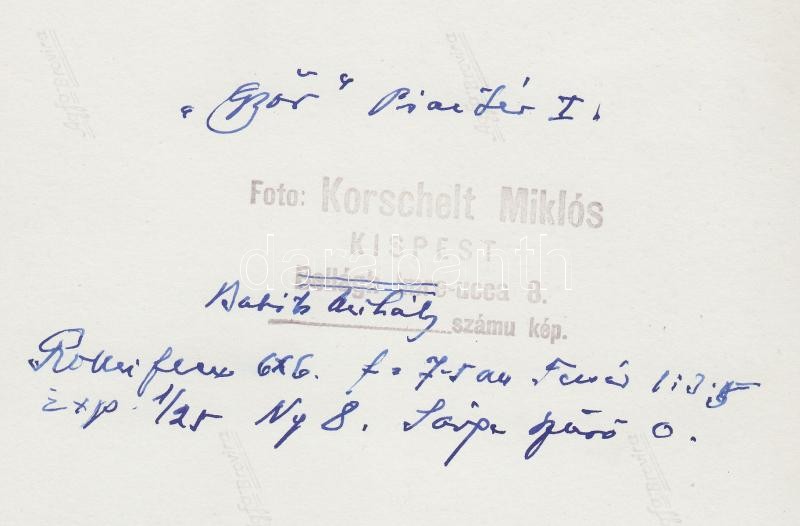 „Győr" Piactér I.
Foto: Korschelt Miklós
KISPEST
-ucca 8.
Babits Mihály
számu kép.
Rolleiflex 6x6. f = 7-5 cm Tessár
Exp. 1/25 Ny 8. Sárga szűrő 0.
darabanth
Agfa Brovira
Agfa Brovira
Agfa Brovira
Agfa Brovira